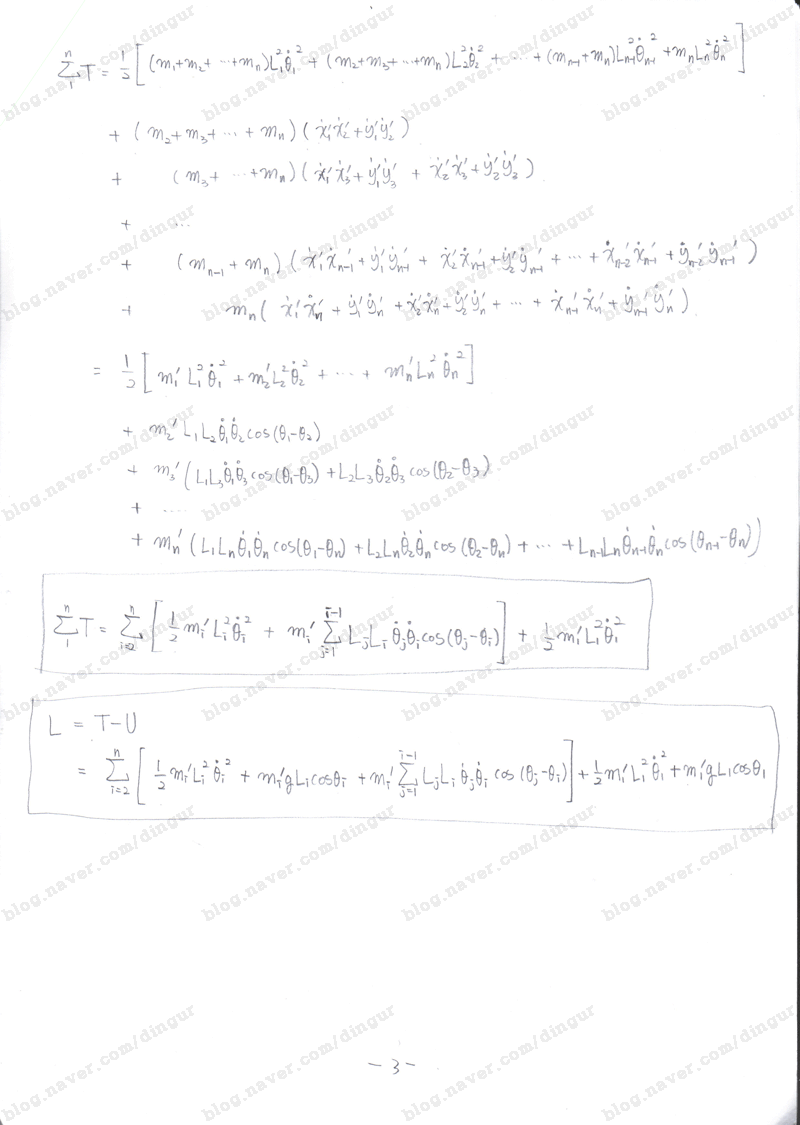 n∑1 T = 1/2 [ (m₁+m₂+⋯+mₙ)L₁²θ̇₁² + (m₂+m₃+⋯+mₙ)L₂²θ̇₂² + ⋯ + (mₙ₋₁+mₙ)Lₙ₋₁²θ̇ₙ₋₁² + mₙLₙ²θ̇ₙ² ]
+ (m₂+m₃+⋯+mₙ)(ẋ₁′ẋ₂′+ẏ₁′ẏ₂′)
+ (m₃+⋯+mₙ)(ẋ₁′ẋ₃′+ẏ₁′ẏ₃′ + ẋ₂′ẋ₃′+ẏ₂′ẏ₃′)
+ ⋯
+ (mₙ₋₁+mₙ)(ẋ₁′ẋₙ₋₁′+ẏ₁′ẏₙ₋₁′ + ẋ₂′ẋₙ₋₁′+ẏ₂′ẏₙ₋₁′ + ⋯ + ẋₙ₋₂′ẋₙ₋₁′+ẏₙ₋₂′ẏₙ₋₁′)
+ mₙ(ẋ₁′ẋₙ′ + ẏ₁′ẏₙ′ + ẋ₂′ẋₙ′+ẏ₂′ẏₙ′ + ⋯ + ẋₙ₋₁′ẋₙ′+ẏₙ₋₁′ẏₙ′)
= 1/2 [ m₁′L₁²θ̇₁² + m₂′L₂²θ̇₂² + ⋯ + mₙ′Lₙ²θ̇ₙ² ]
+ m₂′L₁L₂θ̇₁θ̇₂cos(θ₁-θ₂)
+ m₃′(L₁L₃θ̇₁θ̇₃cos(θ₁-θ₃) + L₂L₃θ̇₂θ̇₃cos(θ₂-θ₃))
+ ⋯
+ mₙ′(L₁Lₙθ̇₁θ̇ₙcos(θ₁-θₙ) + L₂Lₙθ̇₂θ̇ₙcos(θ₂-θₙ) + ⋯ + Lₙ₋₁Lₙθ̇ₙ₋₁θ̇ₙcos(θₙ₋₁-θₙ))
n∑1 T = n∑i=2 [ 1/2 mᵢ′Lᵢ²θ̇ᵢ² + mᵢ′ i-1∑j=1 LⱼLᵢθ̇ⱼθ̇ᵢcos(θⱼ-θᵢ) ] + 1/2 m₁′L₁²θ̇₁²
L = T-U
= n∑i=2 [ 1/2 mᵢ′Lᵢ²θ̇ᵢ² + mᵢ′gLᵢcosθᵢ + mᵢ′ i-1∑j=1 LⱼLᵢθ̇ⱼθ̇ᵢcos(θⱼ-θᵢ) ] + 1/2 m₁′L₁²θ̇₁² + m₁′gL₁cosθ₁
- 3 -
blog.naver.com/dingur